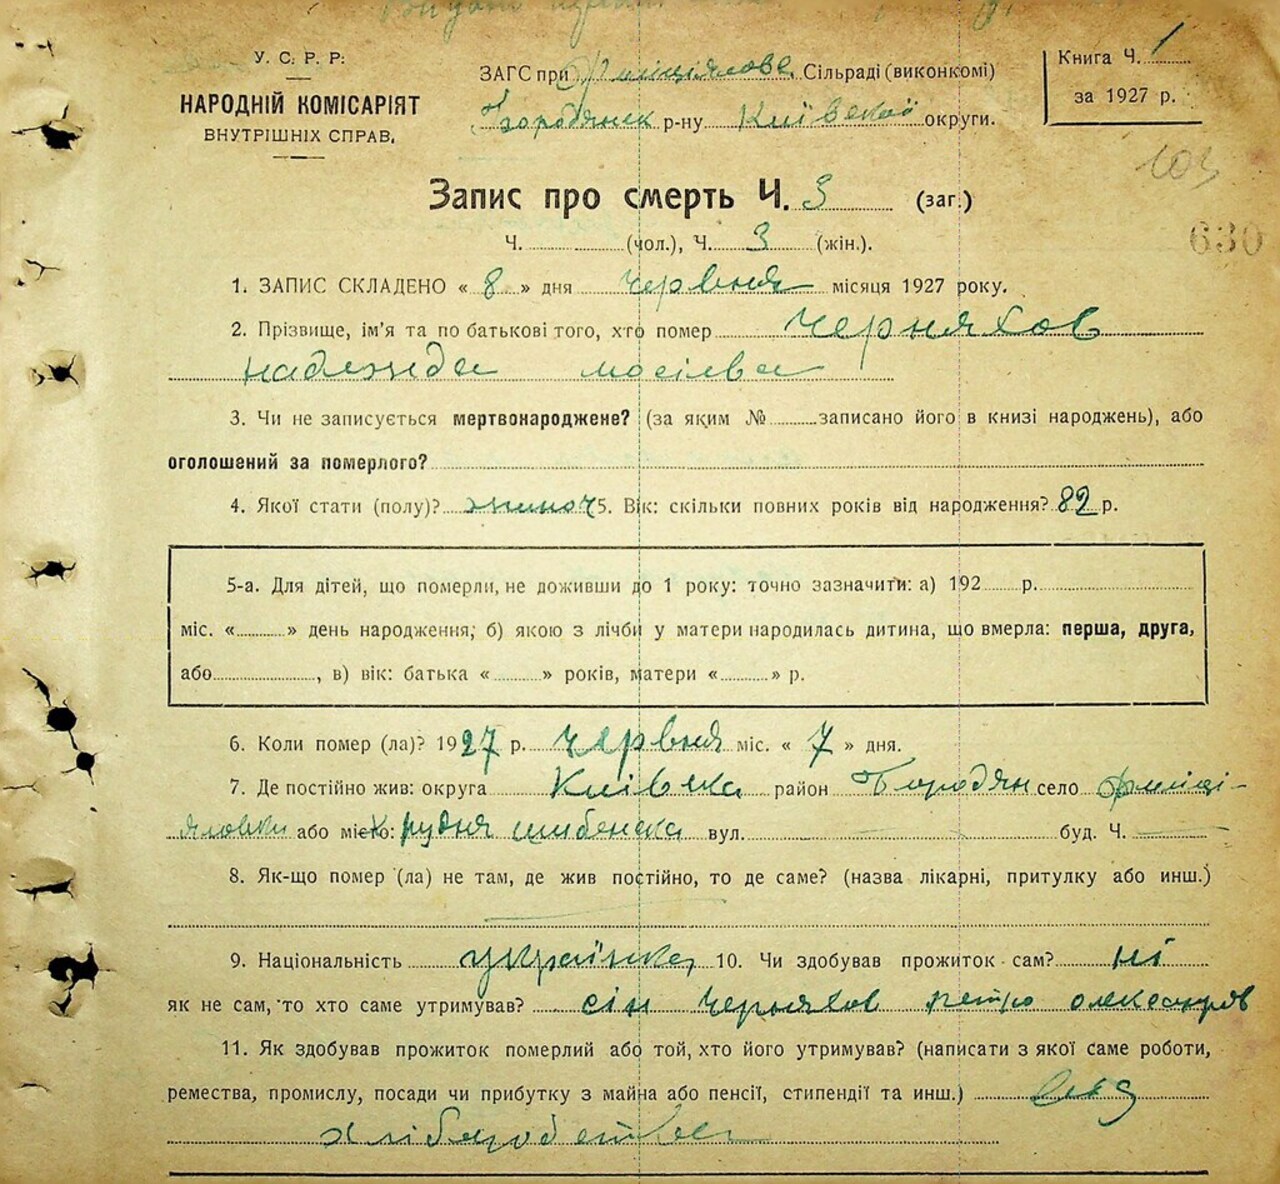 У. С. Р. Р.
НАРОДНІЙ КОМІСАРІЯТ
ВНУТРІШНІХ СПРАВ.
ЗАГС при Сільраді (виконкомі)
р-ну Київської округи.
Книга Ч. 1
за 1927 р.
103
630
Запис про смерть Ч. 3 (заг.)
Ч. (чол.), Ч. 3 (жін.).
1. ЗАПИС СКЛАДЕНО « 8 » дня червня місяця 1927 року.
2. Прізвище, ім'я та по батькові того, хто помер Черняхов
надежда мосіева
3. Чи не записується мертвонароджене? (за яким № записано його в книзі народжень), або
оголошений за померлого?
4. Якої стати (полу)? жиноч 5. Вік: скільки повних років від народження? 82 р.
5-а. Для дітей, що померли, не доживши до 1 року: точно зазначити: а) 192 р.
міс. « » день народження; б) якою з лічби у матери народилась дитина, що вмерла: перша, друга,
або , в) вік: батька « » років, матери « » р.
6. Коли помер (ла)? 1927 р. червня міс. « 7 » дня.
7. Де постійно жив: округа Київска район Бородян село
або місто: Рудня шибенска вул. — буд. Ч. —
8. Як-що помер (ла) не там, де жив постійно, то де саме? (назва лікарні, притулку або инш.)
9. Національність українка 10. Чи здобував прожиток сам? ні
як не сам, то хто саме утримував? сін Черняхов петро олександров
11. Як здобував прожиток померлий або той, хто його утримував? (написати з якої саме роботи,
ремества, промислу, посади чи прибутку з майна або пенсії, стипендії та инш.)